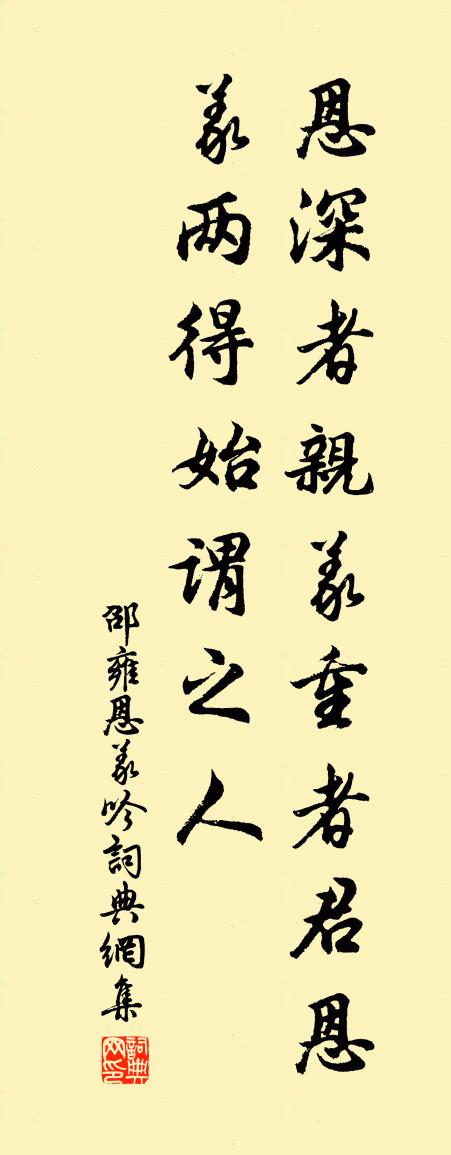 恩深者親義重者君恩
義两得始謂之人
邵雍恩義吟詞典網集
詞典网印